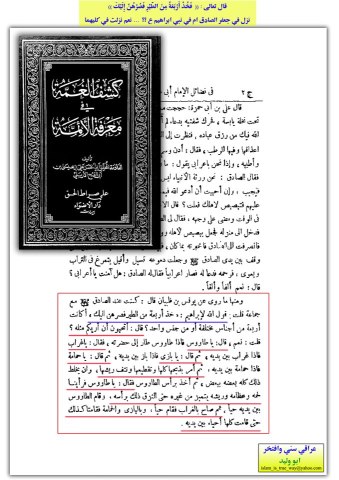 قال تعالى : « فَخُذْ أَرْبَعَةً مِنَ الطَّيْرِ فَصُرْهُنَّ إِلَيْكَ »
نزل في جعفر الصادق ام في نبي ابراهيم ع ؟! ... نعم نزلت في كليهما
كشف الغمة
في
معرفة الأئمة
تأليف
ج ٢
في فضائل الإمام أبي
قال علي بن أبي حمزة : حججت
تحت نخلة يابسة ، فحرك شفتيه
الله فيك من رزق عباده ، فنظرت إلى
أعذاقها وفيها الرطب ، فقال : ادن
وأطيبه ، وإذا نحن بأعرابي يقول : ما
فقال الصادق : نحن ورثة الأنبياء ليس
فيجيب ، وإن أحببت أن أدعو الله
في الوقت ومضى على وجهه ، فقال لي
فدخل الى منزله فجعل يبصبص لأهله
فانصرفت إلى
وقف بين يدي الصادق وجعلت دموعه تسيل وأقبل يتمرغ في التراب
ويعوي ، فرحمه فدعا له فصار أعرابياً فقال له الصادق : هل آمنت يا أعرابي ؟
قال : نعم ألفاً وألفاً .
ومنها ما روى عن يونس بن ظبيان قال : كنت عند الصادق مع
جماعة قلت : قول الله لإبراهيم : خذ أربعة من الطير فصرهن اليك ، أكانت
أربعة من أجناس مختلفة أو من جنس واحد ؟ قال : أتحبون أن أريكم مثله ؟
قلت : نعم ، قال : يا طاووس فإذا طاووس طار إلى حضرته ، فقال : يا غراب
فإذا غراب بين يديه ، ثم قال : يا بازي فإذا باز بين يديه ، ثم قال : يا حمامة
فإذا حمامة بين يديه ، ثم أمر بذبحها كلها وتقطيعها ونتف ريشها ، وأن يخلط
ذلك كله بعضه ببعض ، ثم أخذ برأس الطاووس فقال : يا طاووس فرأينا
لحمه وعظامه وريشه يتميز من غيره حتى التزق ذلك برأسه ، وقام الطاووس
بين يديه حياً ، ثم صاح بالغراب فقام حياً ، وبالبازي والحمامة فقامتا كذلك
حتى قامت كلها أحياء بين يديه .
عراقي سني وافتخر
ابو وليد
islam_is_true_way@yahoo.com